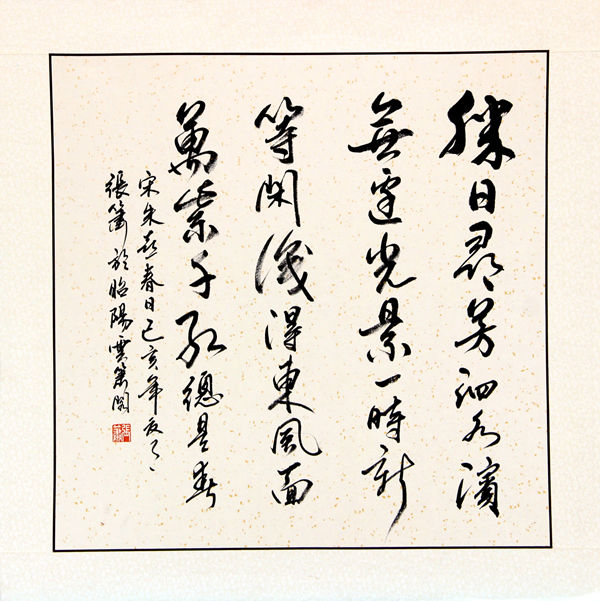 勝日尋芳泗水濱
無邊光景一時新
等閑識得東風面
萬紫千紅總是春
宋朱熹春日己亥年
張簫於昭陽雲簫閣